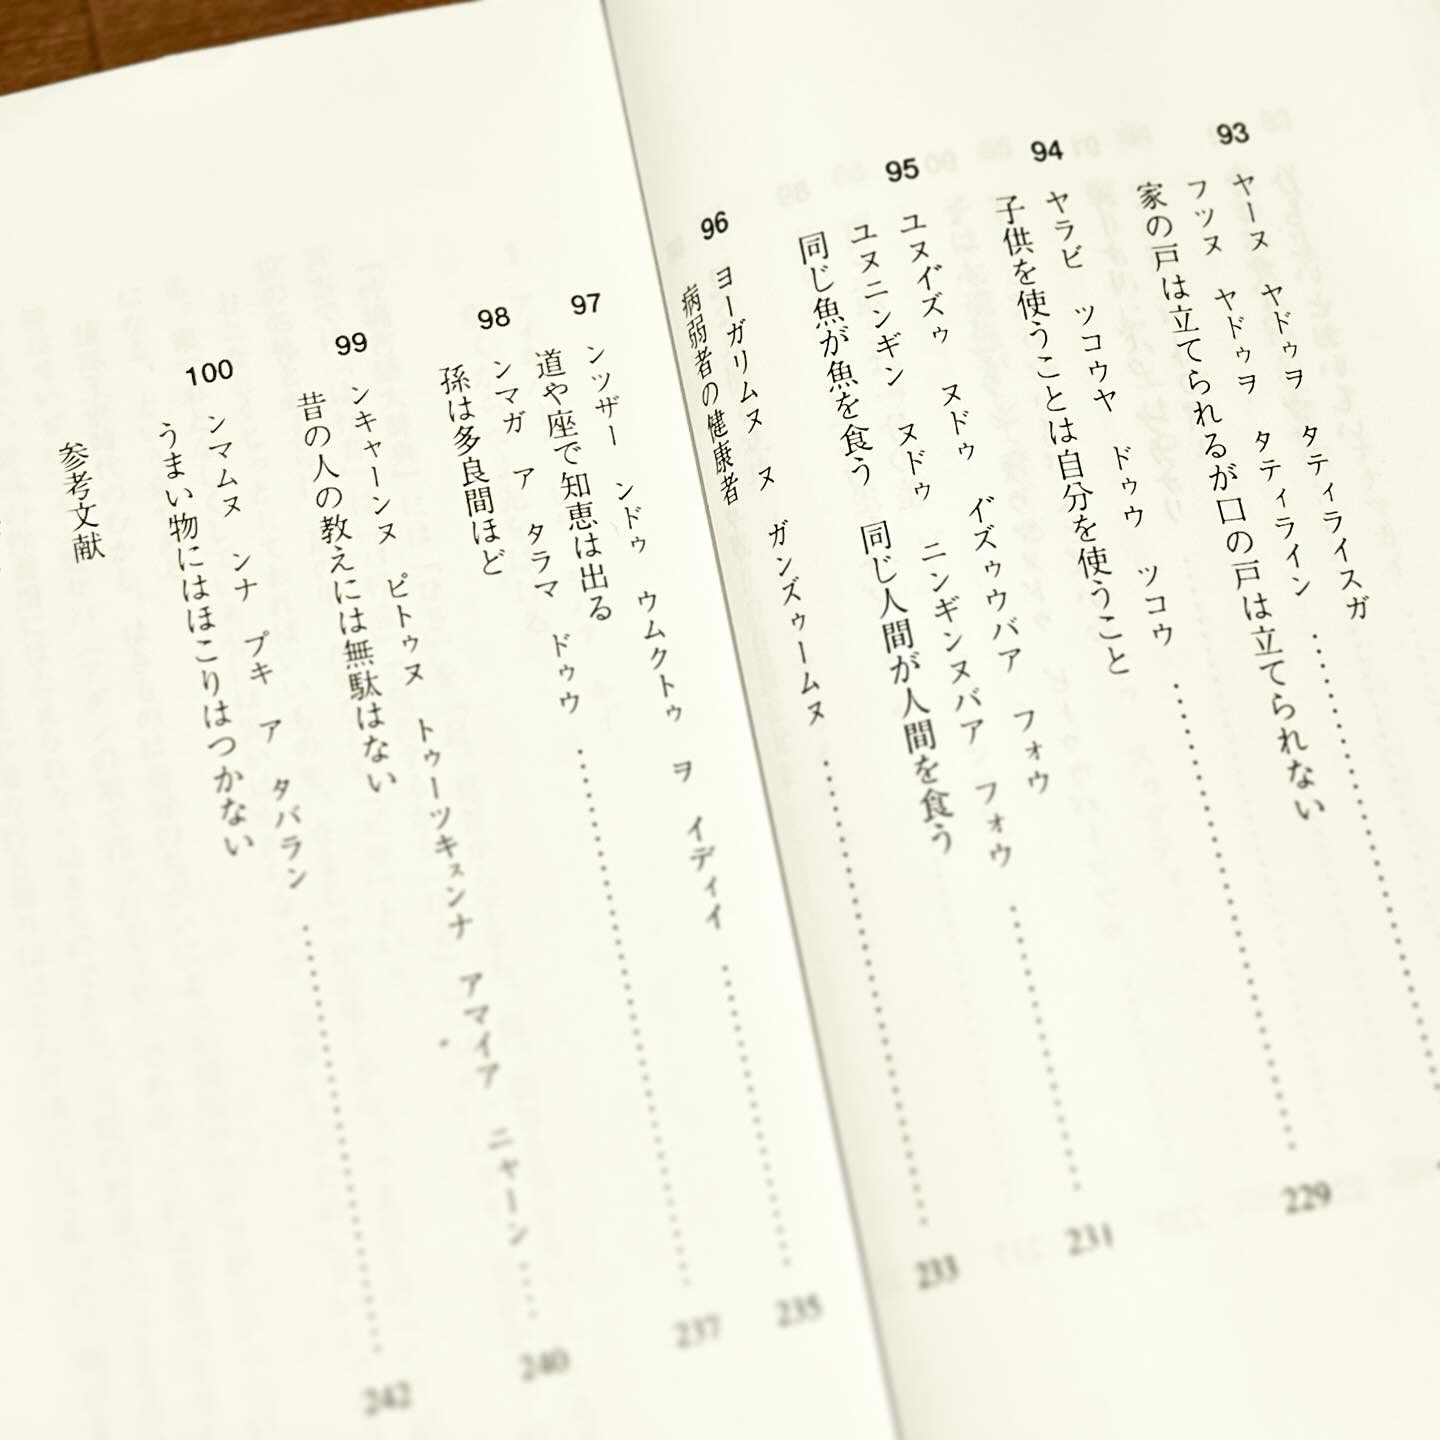 93 ヤーヌ ヤドゥヲ タティライスガ
フッヌ ヤドゥヲ タティライン ……
家の戸は立てられるが口の戸は立てられない
94 ヤラビ ツコウヤ ドゥウ ツコウ …… 229
子供を使うことは自分を使うこと
95 ユヌイズゥ ヌドゥ イズゥウバア フォウ
ユヌニンギン ヌドゥ ニンギンヌバア フォウ …… 231
同じ魚が魚を食う 同じ人間が人間を食う
96 ヨーガリムヌ ヌ ガンズゥームヌ …… 233
病弱者の健康者
97 ンツザー ンドゥ ウムクトゥ ヲ イディイ …… 235
道や座で知恵は出る
98 ンマガ ア タラマ ドゥウ …… 237
孫は多良間ほど
99 ンキャーンヌ ピトゥヌ トゥーツキㇲンナ アマイア ニャーン …… 240
昔の人の教えには無駄はない
100 ンマムヌ ンナ プキ ア タバラン …… 242
うまい物にはほこりはつかない
参考文献